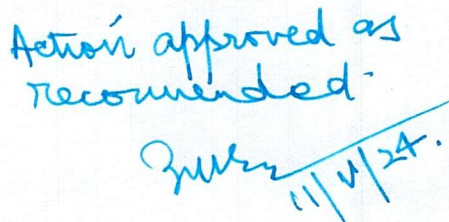 Action approved as
recommended
11/V/24.